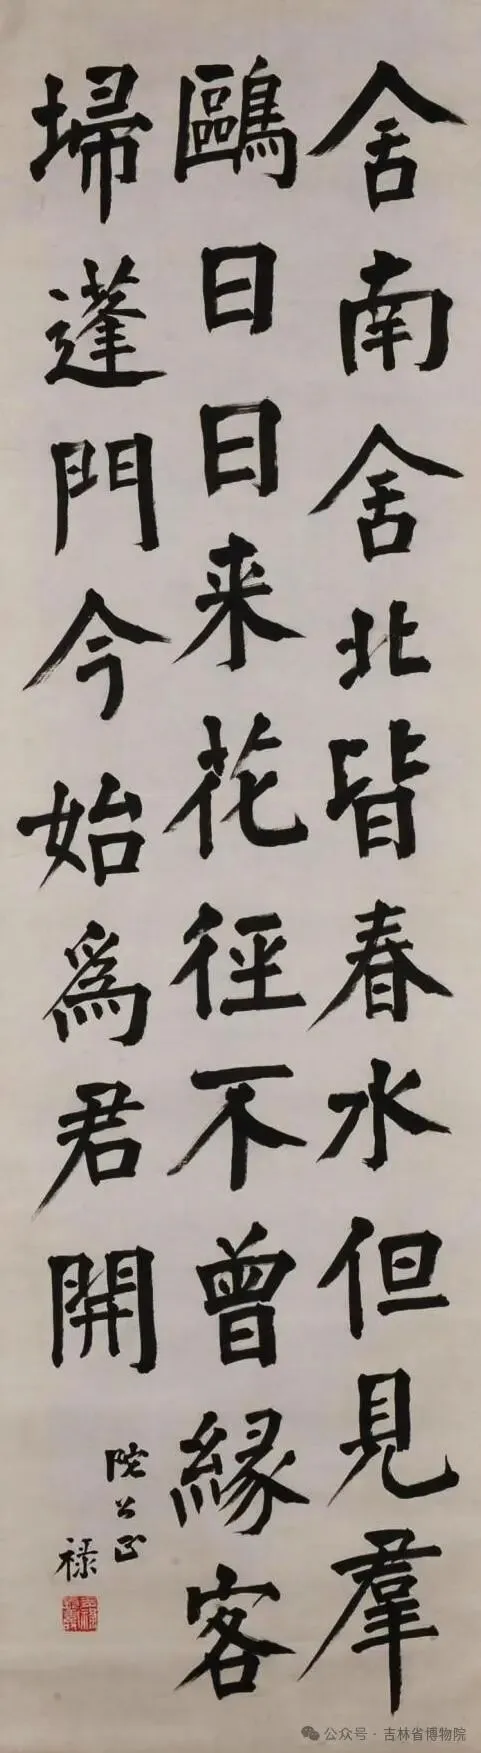 舍南舍北皆春水但見羣
鷗日日来花徑不曾緣客
埽蓬門今始爲君開
院公正
禄
公众号·吉林省博物院